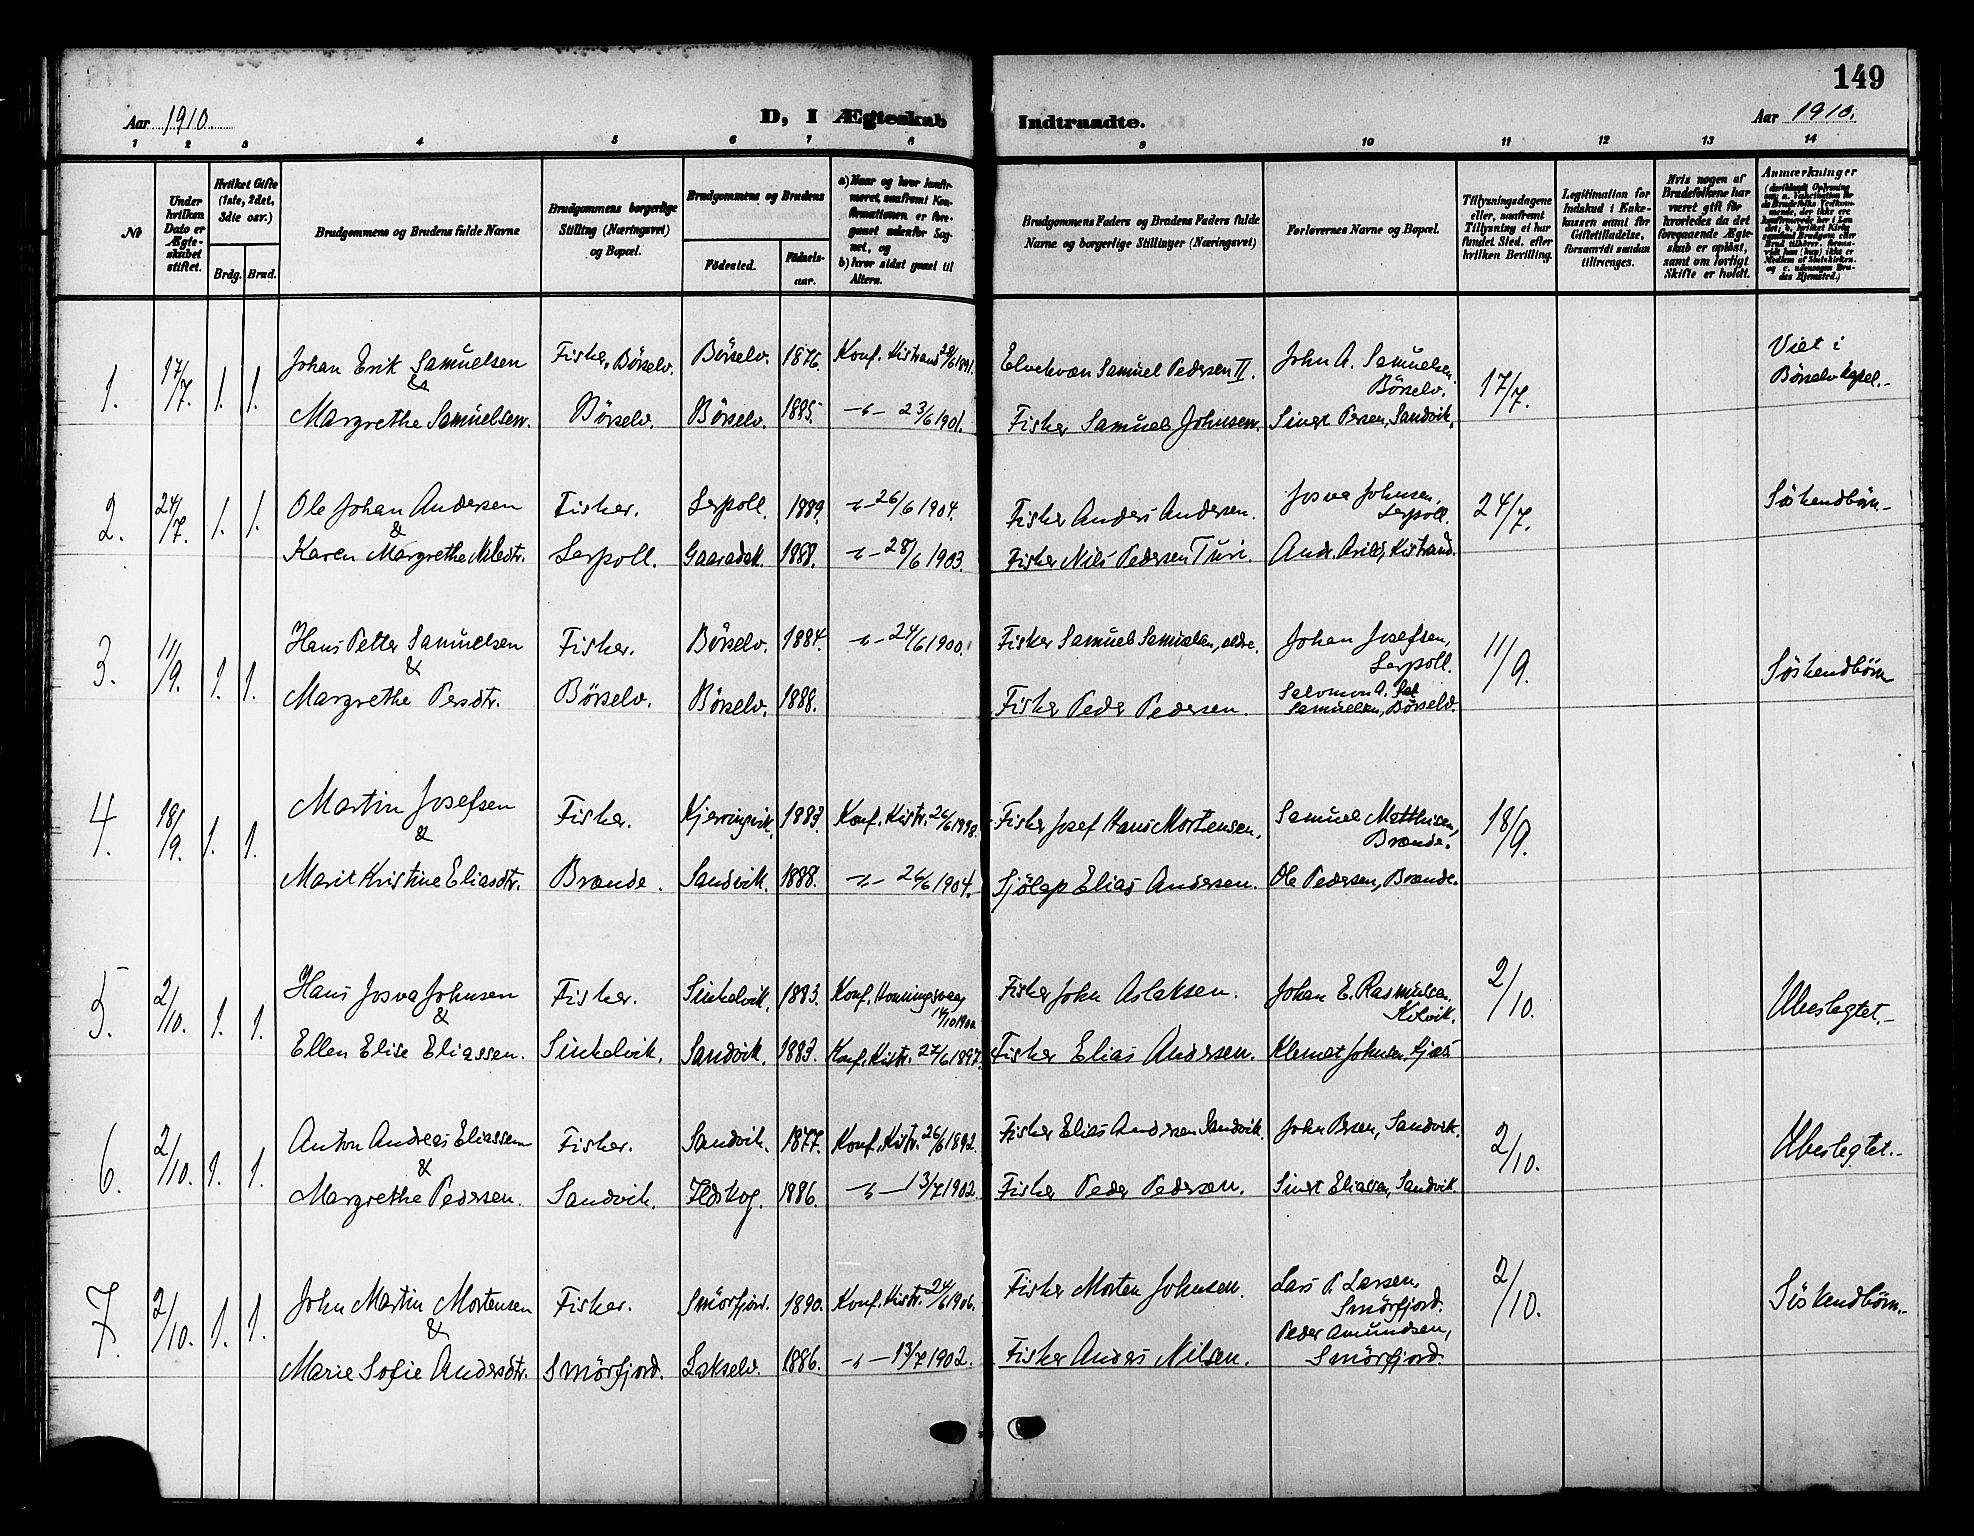 149
Aar 1910.
D, I Ægteskab Indtraadte.
Aar 1910.
1 2 3 4 5 6 7 8 9 10 11 12 13 14
No
Under hvilken Dato er Ægteskabet stiftet.
Hvilket Gifte (1ste, 2det, 3die osv.)
Brdg. Brud.
Brudgommens og Brudens fulde Navne
Brudgommens borgerlige Stilling (Næringsvei) og Bopæl.
Brudgommens og Brudens
Fødested.
Fødselsaar.
a) Naar og hvor konfirmeret, saafremt Konfirmationen er foregaaet udenfor Sognet, og
b) hvor sidst gaaet til Alters.
Brudgommens Faders og Brudens Faders fulde Navne og borgerlige Stillinger (Næringsvei)
Forlovernes Navne og Bopæl.
Tillysningsdagene eller, saafremt Tillysning ei har fundet Sted, efter hvilken Bevilling.
Legitimation for Indskud i Enkekassen samt for Giftetilladelse, forsaavidt saadan tiltrænges.
Hvis nogen af Brudefolkene har været gift før hvorledes da det foregaaende Ægteskab er opløst, samt om lovligt Skifte er holdt.
Anmærkninger
1. 17/7. 1. 1. Johan Erik Samuelsen Fisker, Börselv. Börselv. 1876. Konf. Kistrand 28/6 1891. Elvekvæn Samuel Pedersen II. John A. Samuelsen, Börselv. 17/7. Viet i Börselv kapel.-
&
Margrethe Samuelsen. Börselv. Börselv. 1885. -"- 23/6 1901. Fisker Samuel Johnsen. Sivert Persen, Sandvik.
2. 24/7. 1. 1. Ole Johan Andersen Fisker. Lerpoll. 1889. -"- 26/6 1904. Fisker Anders Andersen. Josva Johnsen, Lerpoll. 24/7. Söskendbörn-
&
Karen Margrethe Nilsdtr. Lerpoll. Gaaradak. 1888. -"- 28/6 1903. Fisker Nils Pedersen Turi. And. Arild, Kistrand.
3. 11/9. 1. 1. Hans Petter Samuelsen Fisker. Börselv. 1884. -"- 24/6 1900. Fisker Samuel Samuelsen, eldre. Johan Josefsen, Lerpoll. 11/9. Söskendbörn
&
Margrethe Persdtr. Börselv. Börselv. 1888. Fisker Peder Pedersen. Salomon A. Samuelsen, Börselv.
4. 18/9. 1. 1. Martin Josefsen Fisker. Kjerringvik. 1883. Konf. Kistr. 26/6 1898. Fisker Josef Hans Mortensen. Samuel Matthisen, Brænde. 18/9.
&
Marit Kristine Eliasdtr. Brænde. Sandvik. 1888. -"- 26/6 1904. Sjölap Elias Andersen. Ole Pedersen, Brænde.
5. 2/10. 1. 1. Hans Josva Johnsen Fisker. Sinkelvik. 1883. Konf. Honningsvaag 14/10 1900. Fisker John Aslaksen. Johan E. Rasmussen. Kolvik. 2/10. Ubeslegtet.-
&
Ellen Elise Eliassen. Sinkelvik. Sandvik. 1883. Konf. Kistr. 27/6 1897. Fisker Elias Andersen. Klemet Johnsen,
6. 2/10. 1. 1. Anton Andreas Eliassen Fisker. Sandvik. 1877. Konf. Kistr. 26/6 1892. Fisker Elias Andersen Sandvik. John Persen, Sandvik. 2/10. Ubeslegtet.-
&
Margrethe Pedersen. Sandvik. Ildskog. 1886. -"- 13/7 1902. Fisker Peder Pedersen. Sivert Eliassen, Sandvik.
7. 2/10. 1. 1. John Martin Mortensen Fisker. Smörfjord. 1890. Konf. Kistr. 24/6 1906. Fisker Morten Johnsen. Lars P. Larsen, Smörfjord. 2/10. Söskendbörn.-
&
Marie Sofie Andersdtr. Smörfjord. Lakselv. 1886. -"- 13/7 1902. Fisker Anders Nilsen. Peder Amundsen, Smörfjord.